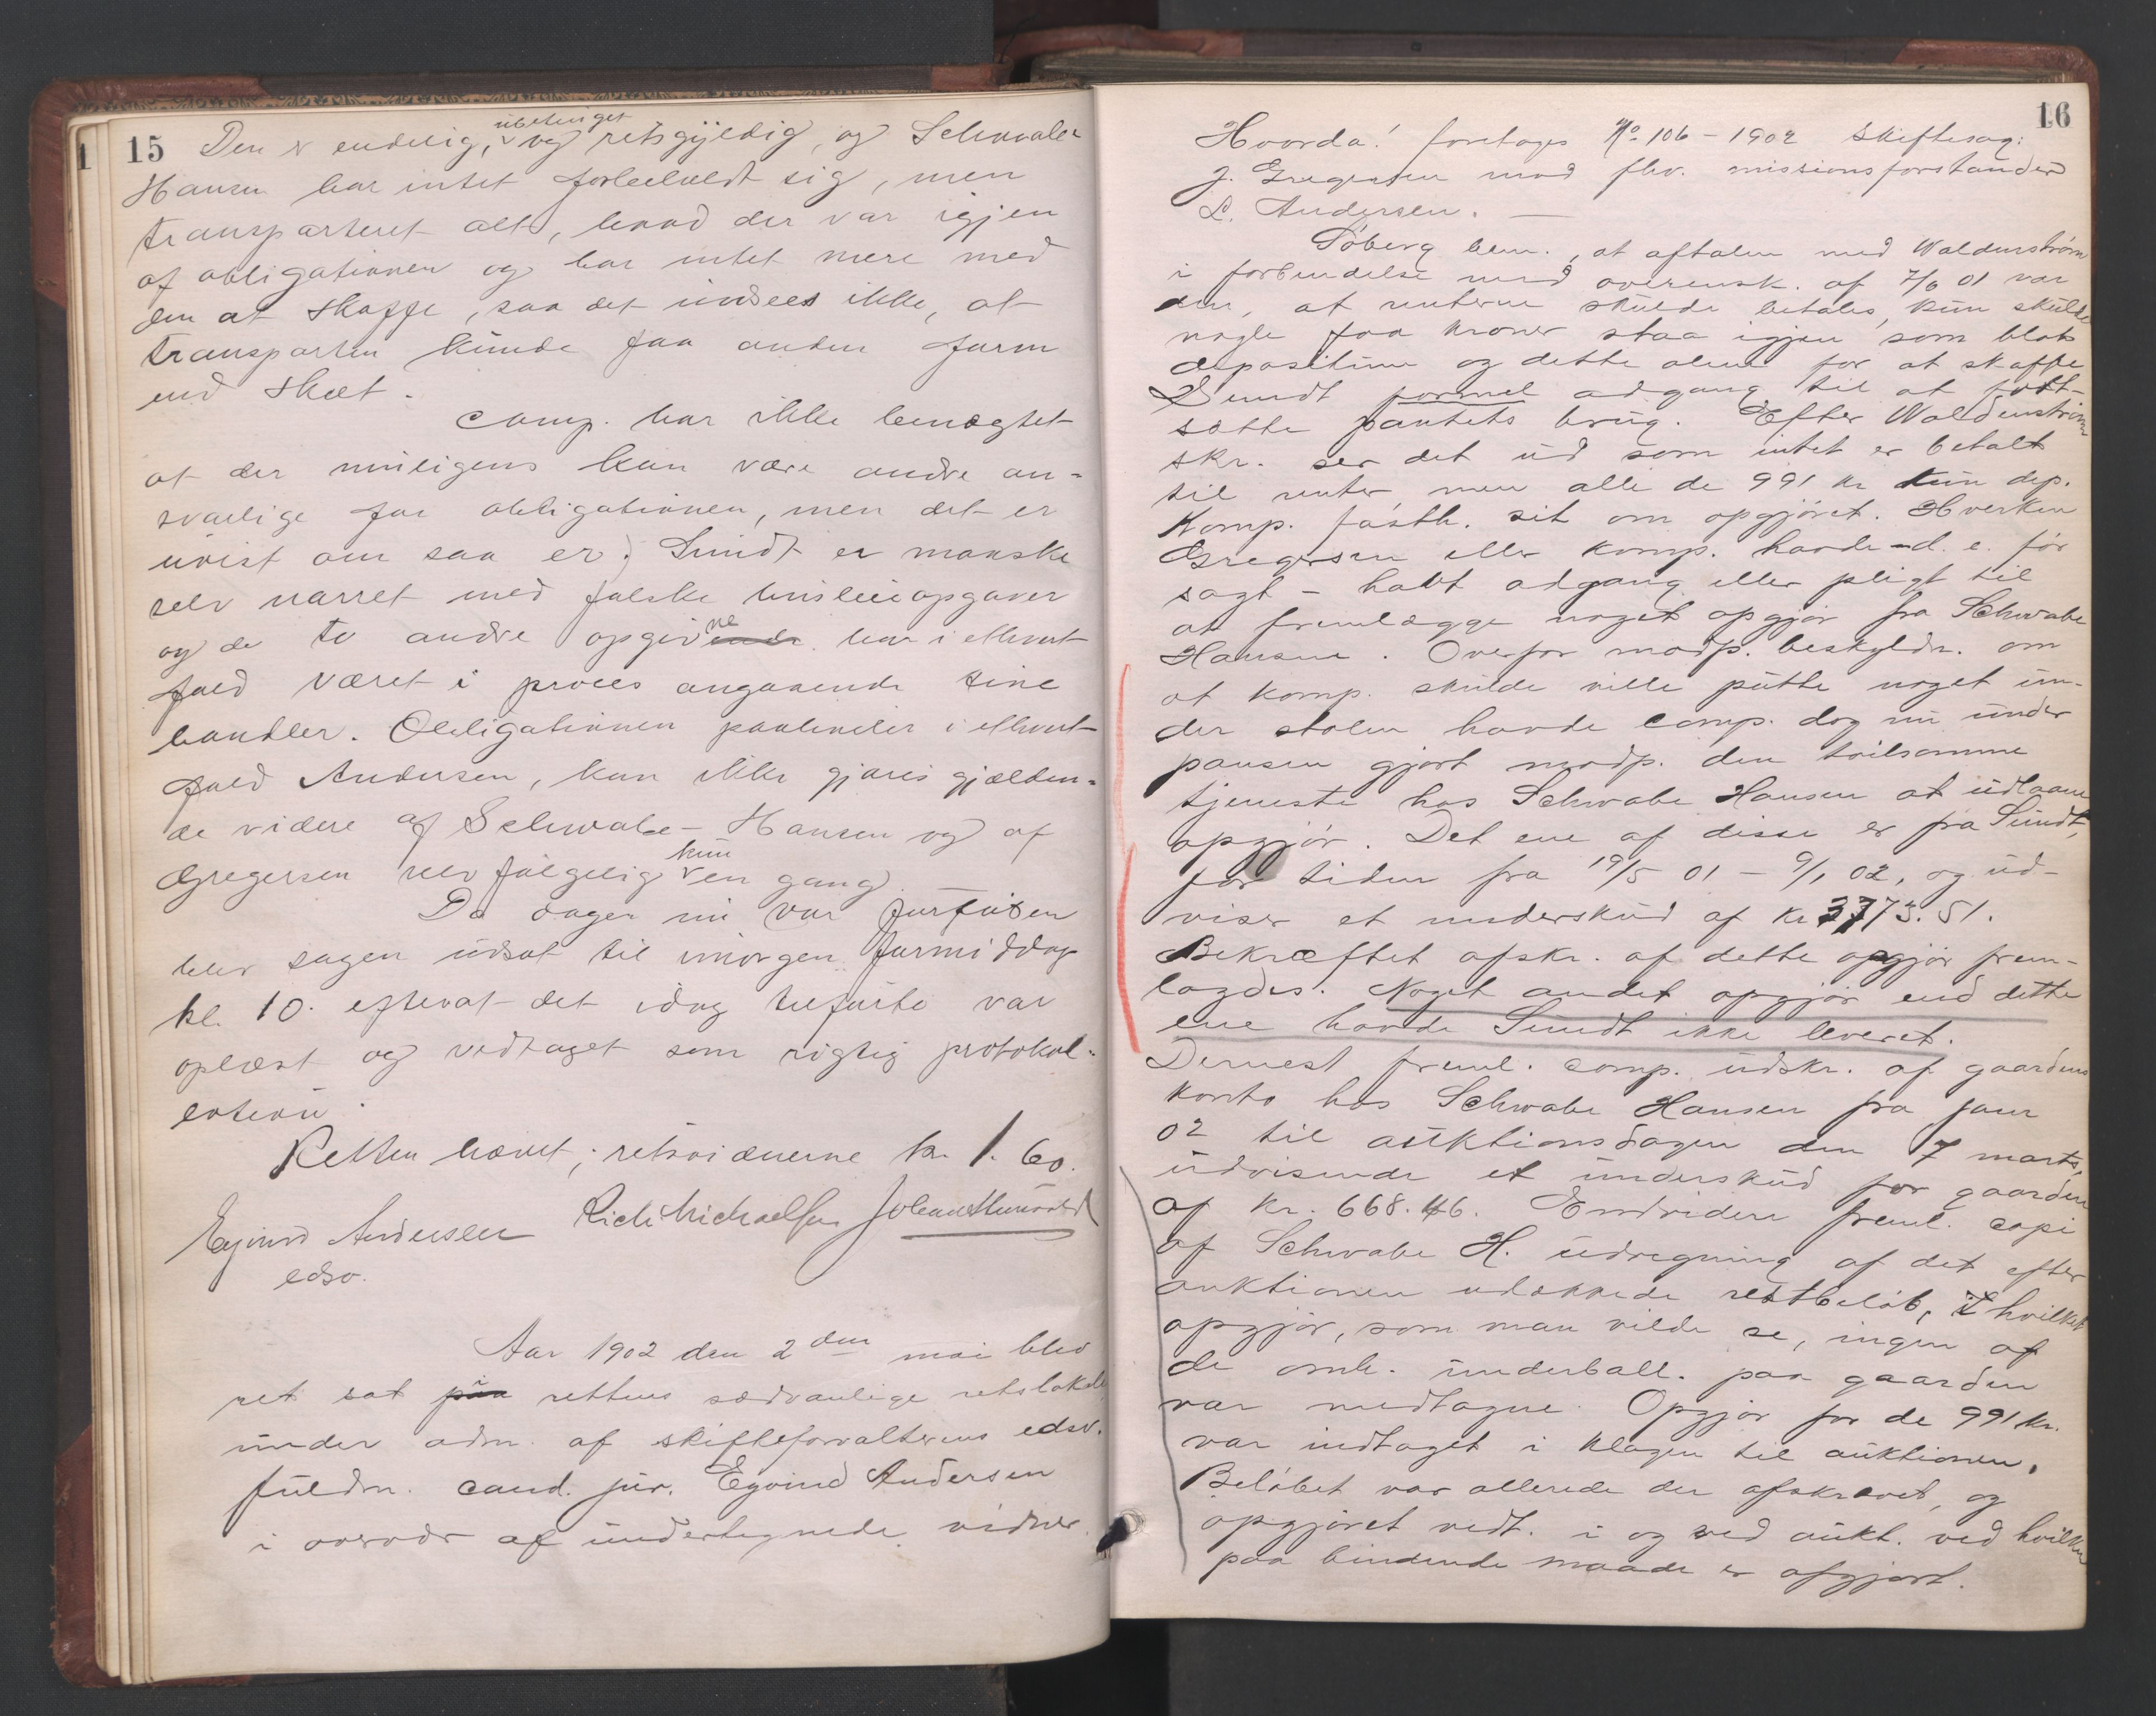 15
Den er endelig, ubetinget og retsgyldig, og Schwabe
Hansen har intet forbeholdt sig, men
transporteret alt, hvad der var igjen
af obligationen og har intet mere med
den at skaffe, saa det indsees ikke, at
transporten kunde faa anden form
end skeet.
Comp. har ikke benægtet
at der muligens kan være andre an-
svarlige for obligationen, men det er
uvist om saa er; Sundt er maaske
selv narret med falske husleieopgaver
og de to andre opgivne har i ethvert
fald været i proces angaaende sine
handler. Obligationen paahviler i ethvert
fald Andersen, kan ikke gjøres gjælden-
de videre af Schwabe-Hansen og af
Gregersen selvfølgelig kun en gang.
Da dagen nu var forløben
blev sagen udsat til imorgen formiddag
kl. 10. efterat det idag tilførte var
oplæst og vedtaget som rigtig protokol-
leteru.
Retten hævet; retsvidnerne kr. 1.60.
Eyvind Andersen
edsv.
Rich Michaelsen
Aar 1902 den 2den mai blev
ret sat i rettens sædvanlige retslokale
under adm. af skifteforvalterens edsv.
fuldm. cand. jur. Eyvind Andersen
i overvær af undertegnede vidner.
16
Hvorda! foretages No 106 - 1902 Skiftesag:
J. Gregersen mod fhv. missionsforstander
L. Andersen. —
Söberg bem., at aftalen med Waldenström
i forbindelse med overensk. af 7/6 01 var
den, at renterne skulde betales, kun skulde
nogle faa kroner staa igjen som blot
depositum og dette alene for at skaffe
Sundt formel adgang til at fort-
sætte pantets brug. Efter Waldenströms
skr. ser det ud som intet er betalt
til renter, men alle de 991 kr kun dep.
Komp. fasth. sit om opgjöret. Hverken
Gregersen eller komp. havde - d. e. för
sagt - havt adgang eller pligt til
at fremlægge noget opgjör fra Schwabe
Hansen. Overfor modp. beskyldn. om
at komp. skulde ville putte noget un-
der stolen havde comp. dog nu under
pausen gjort modp. den tvilsomme
tjeneste hos Schwabe Hansen at udlaane
opgjör. Det ene af disse er fra Sundt,
for tiden fra 19/5 01 - 9/1 02, og ud-
viser et underskud af kr 3773.51.
Bekræftet afskr. af dette opgjör frem-
lagdes. Noget andet opgjör end dette
ene havde Sundt ikke leveret.
Dernest freml. comp. udskr. af gaardens
konto hos Schwabe Hansen fra janr
02 til auktionsdagen den 7 marts,
udvisende et underskud for gaarden
af kr. 668.46. Endvidere freml. copi
af Schwabe H. udregning af det efter
auktionen udækkede restbelöb, i hvilket
opgjör, som man vilde se, ingen af
de omh. underball. paa gaarden
var medtagne. Opgjör for de 991 kr.
var indtaget i klagen til auktionen.
Belöbet var allerede der afskrevet, og
opgjöret vedt. i og ved aukt. ved hvilken
paa bindende maade er afgjort.